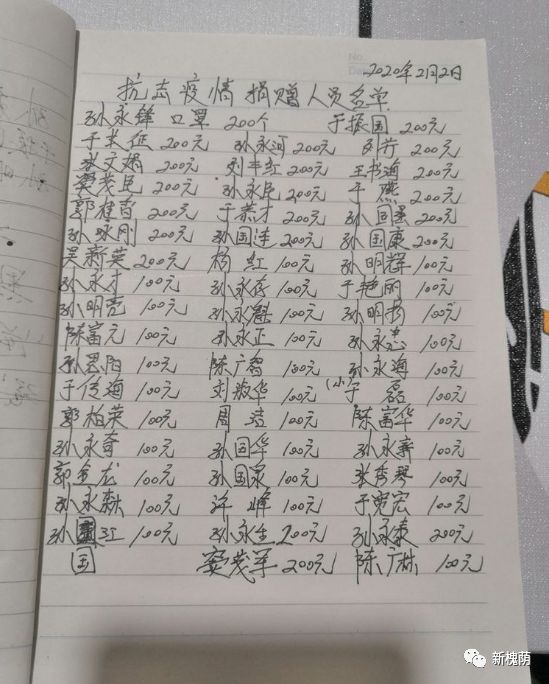 No.
Date
2020年2月2日
抗击疫情捐赠人员名单
孙永锋 口罩 200个 于振国 200元
于长征 200元 孙永河 200元 200元
张文娟 200元 刘丰红 200元 王书海 200元
窦茂臣 200元 孙永臣 200元 于燕 200元
郭桂香 200元 于荣才 200元 孙国星 200元
孙咏刚 200元 孙国连 200元 孙国康 200元
吴新英 200元 杨红 100元 孙明辉 100元
孙永才 100元 孙永存 100元 于艳丽 100元
孙明亮 100元 孙永魁 100元 孙明彬 100元
陈富元 100元 孙永正 100元 孙永忠 100元
孙恩阳 100元 陈广智 100元 孙永海 100元
于传海 100元 刘敬华 100元 (小)于磊 100元
郭柏英 100元 周洁 100元 陈富华 100元
孙永奇 100元 孙国华 100元 孙永寿 100元
郭金龙 100元 孙国泉 100元 张秀琴 100元
孙永森 100元 许峰 100元 于贾宏 100元
孙江 100元 孙永生 200元 孙永泰 200元
国 窦茂军 200元 陈广林 100元
新槐荫